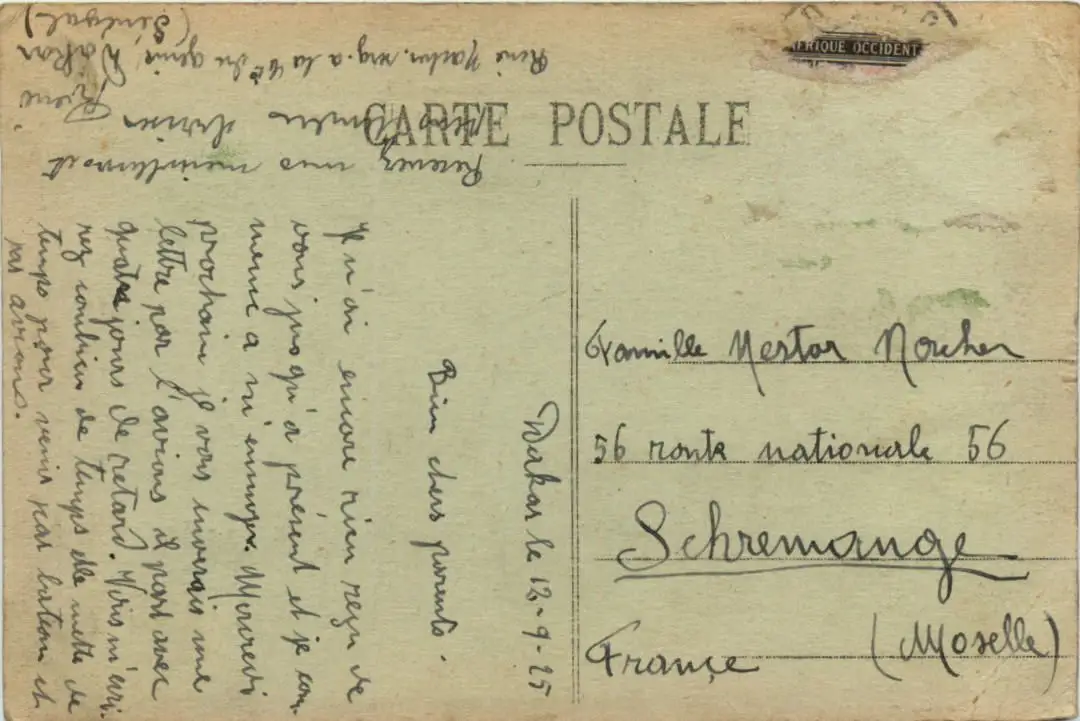 AFRIQUE OCCIDENT
CARTE POSTALE
Dakar le 12-9-25
Bien chers parents.
Je n'ai encore rien reçu de
vous jusqu'à présent et je com-
mence a m'ennuyer. Mercredi
prochain je vous envoais une
lettre par l'avions il part avec
quatre jours de retard. Vous m'écri-
rez combien de temps elle mettra de
temps pour venir par bateau et
par avions.
Recevez mes meilleurs et
baisers René
René a la du génie, Dakar
(Sénégal)
Famille Nestor
56 route nationale 56
Schremange
(Moselle)
France